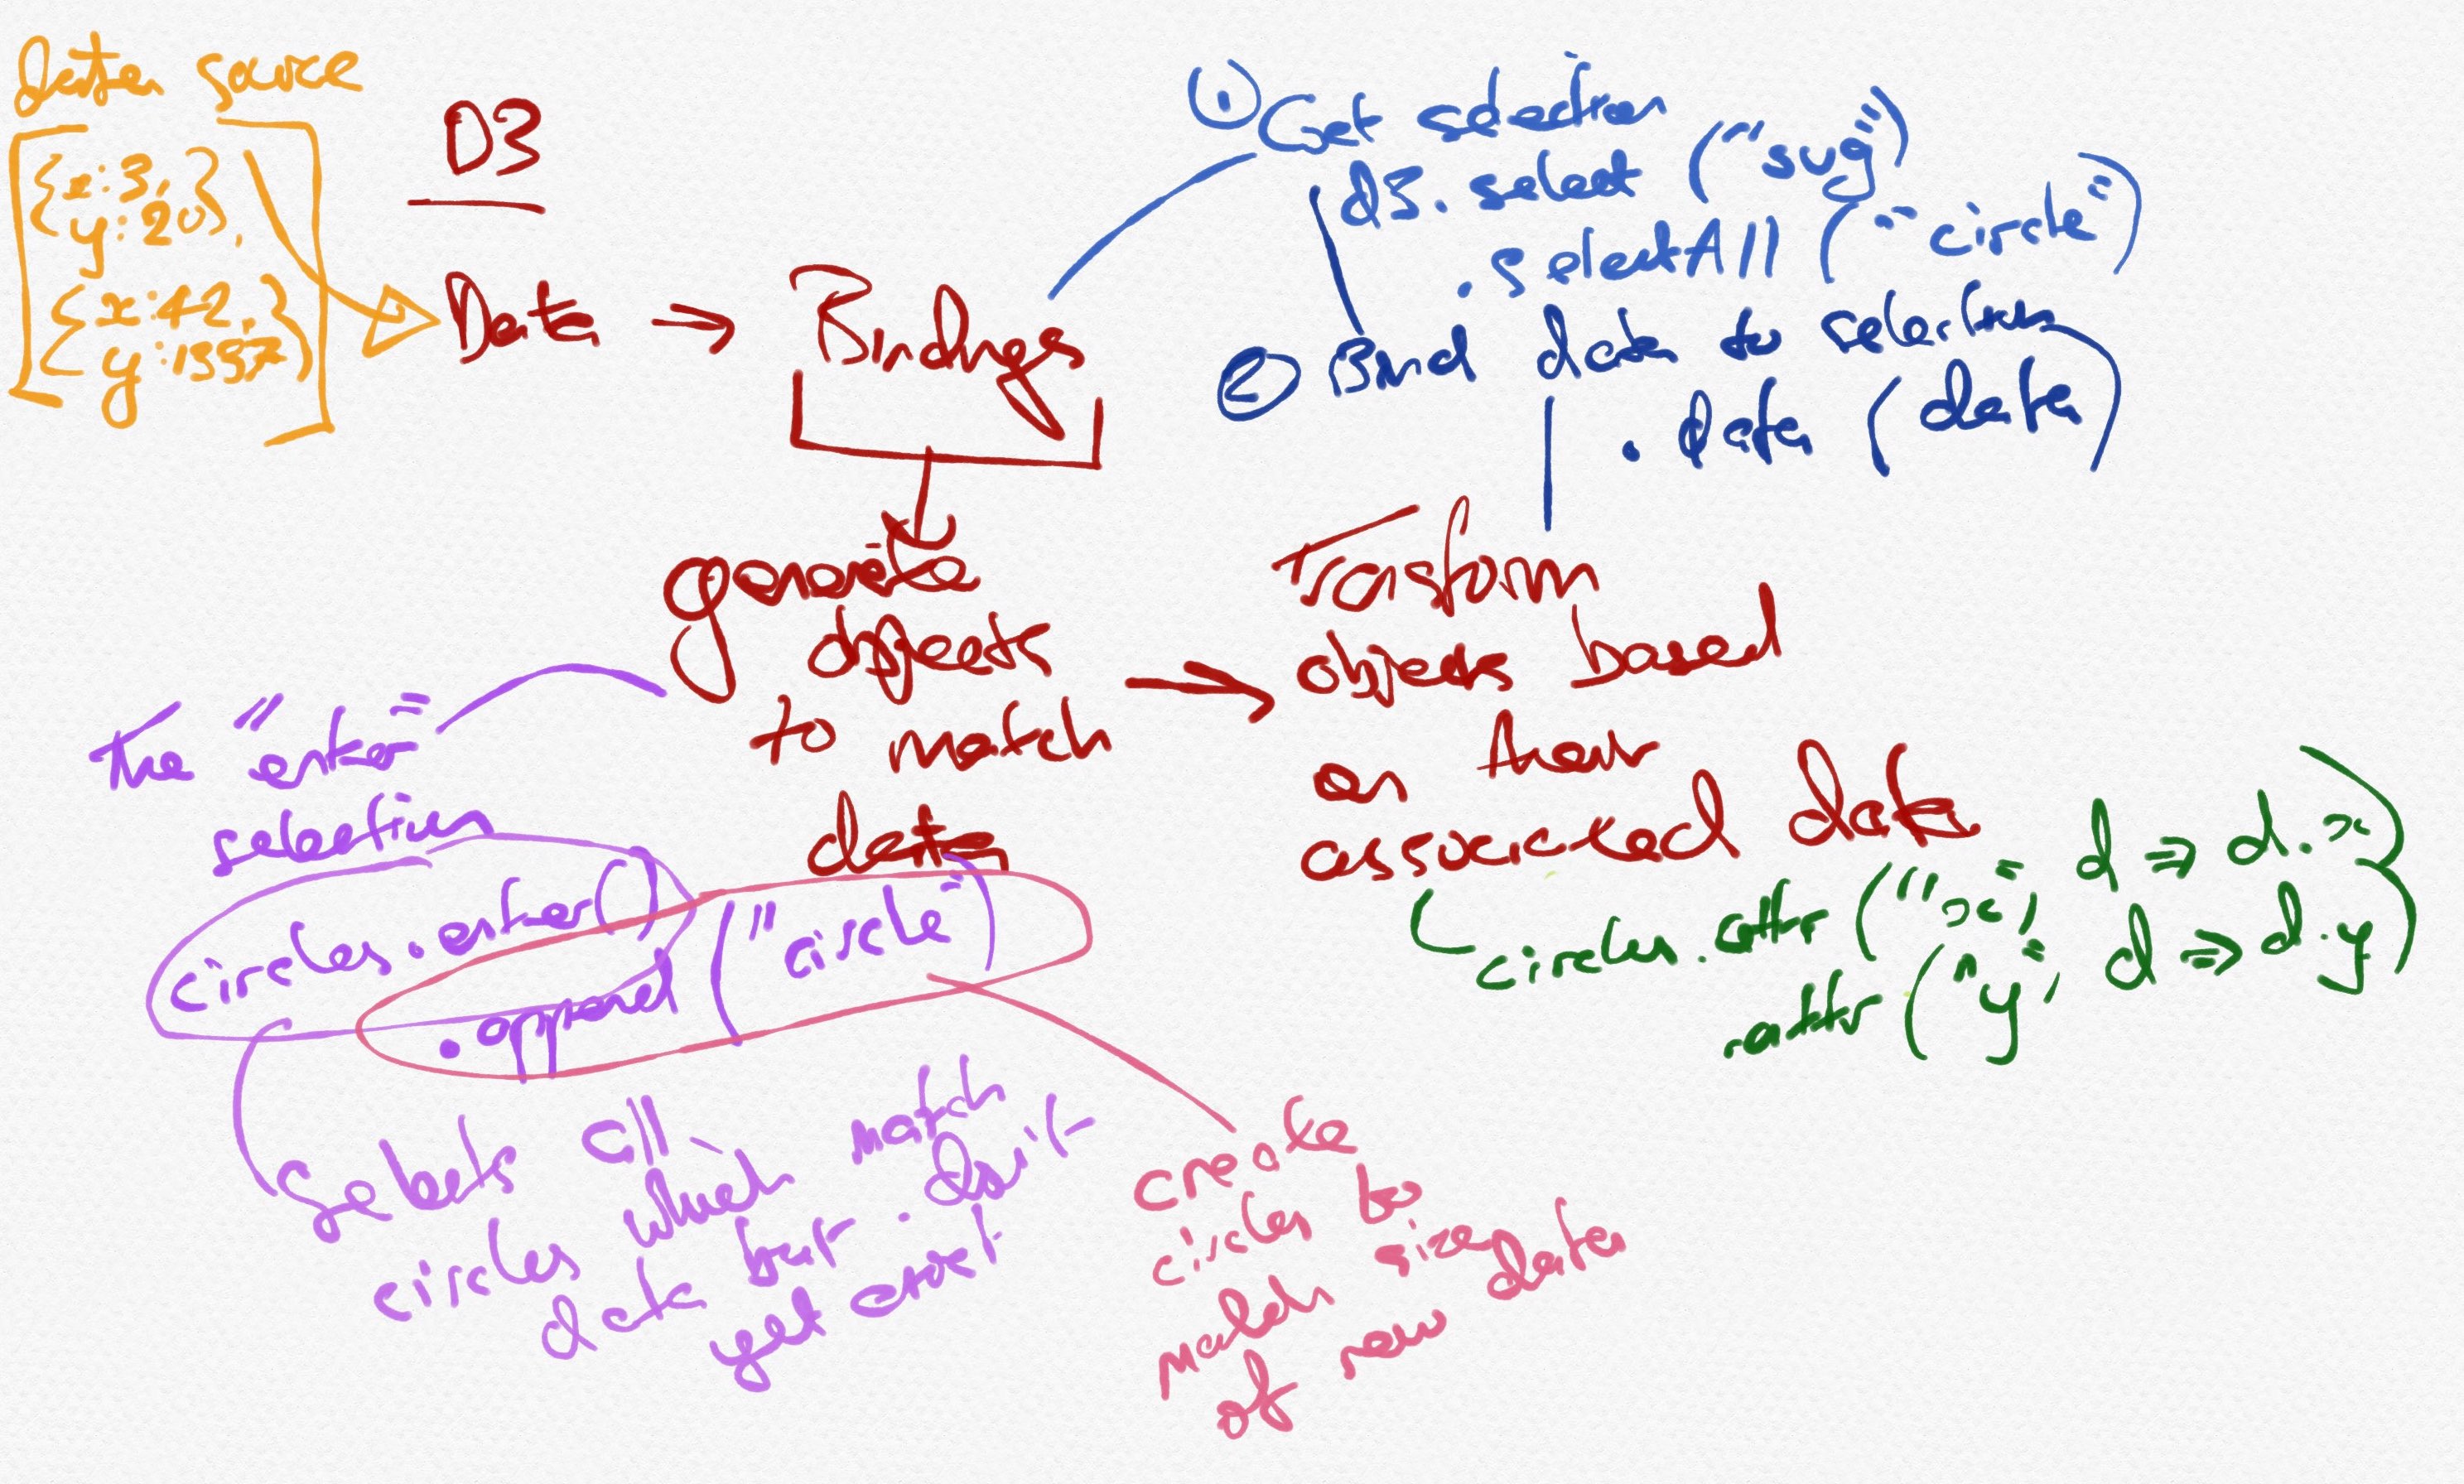 data source
[{x:3,},
y:20},
{x:42,}
y:1337}]
D3
Data → Bindings
① Get selection
d3.select ("svg")
.selectAll ("circle")
② Bind data to selection
.data (data)
generate
objects
to match
data
→
Transform
objects based
on their
associated data
circles.attr ("x", d => d.x)
.attr ("y", d => d.y)
The "enter"
selection
circles.enter()
.append ("circle")
Selects all
circles which match
data but don't
yet exist
create
circles to
match size
of new data